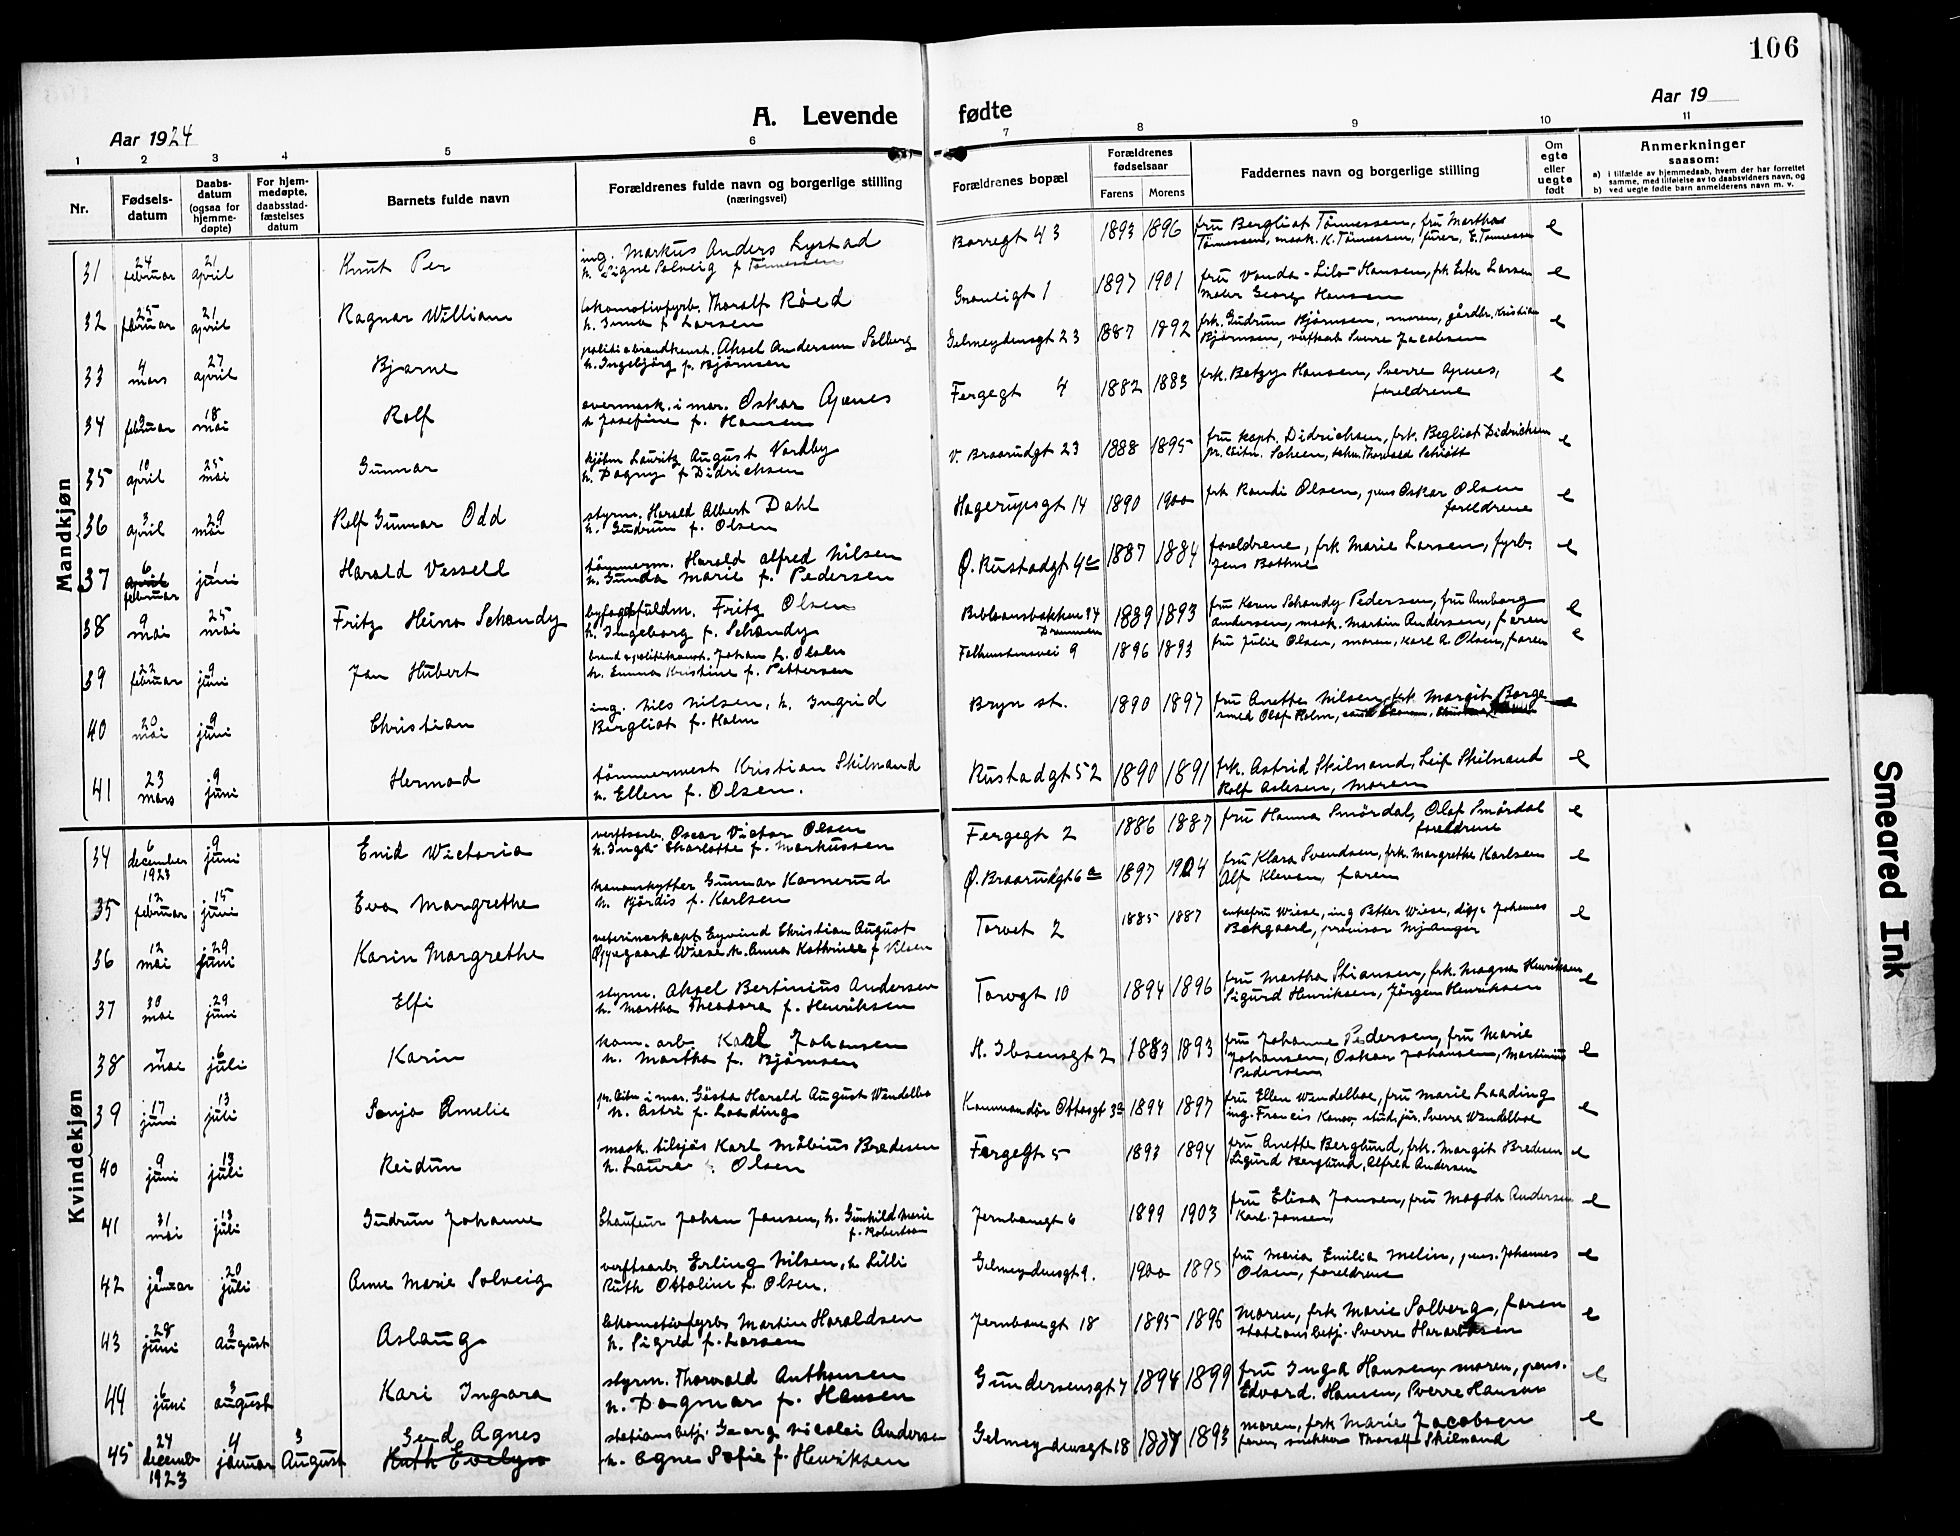 106
Aar 1924
A. Levende fødte
Aar 19
1 2 3 4 5 6 7 8 9 10 11
Nr.
Fødsels-
datum
Daabs-
datum
(ogsaa for
hjemme-
døpte)
For hjem-
medøpte,
daabsstad-
fæstelses
datum
Barnets fulde navn
Forældrenes fulde navn og borgerlige stilling
(næringsvei)
Forældrenes bopæl
Forældrenes
fødselsaar
Farens Morens
Faddernes navn og borgerlige stilling
Om
egte
eller
uegte
født
Anmerkninger
saasom:
a) i tilfælde av hjemmedaab, hvem der har forrettet
samme, med tilføielse av to daabsvidners navn, og
b) ved uegte fødte barn anmelderens navn m. v.
Mandkjøn
31 24 februar 21 april Knut Per
ing. Markus Anders Lystad
h. Signe Solveig f. Tönnessen
Borregt 43 1893 1896
fru Bergliot Tönnessen, fru Martha
Tönnessen, mask. K. Tönnessen, furer, E. Tönnessen e
32 25 februar 21 april Ragnar William
lokomotivfyrb. Thoralf Röed
h. Irma f. Larsen
Granligt 1 1897 1901
fru Vanda-Lilo Hansen, frk Ester Larsen
maler Georg Hansen e
33 4 mars 27 april Bjarne
politi o brandkonst. Aksel Andersen Solberg
h. Ingebjörg f. Bjørnsen
Gelmeydensgt 23 1887 1892
frk. Gudrun Bjørnsen, moren, gårdbr. Kristian
Bjørnsen, verftsarb Sverre Jacobsen e
34 9 februar 18 mai Rolf
overmask. i mar. Oskar Apenes
h Josefine f. Hansen
Fergegt 4 1882 1883
frk. Betzy Hansen, Sverre Apenes,
foreldrene e
35 10 april 25 mai Gunnar
kjøbm Lauritz August Nordby
h. Dagny f Didrichsen
V. Braarudgt 23 1888 1895
fru kapt. Didrichsen, frk. Begliot Didrichsen
pr. löitn. Scheen, Thorvald Schiøtt e
36 3 april 29 mai Rolf Gunnar Odd
styrm. Harald Albert Dahl
h. Gudrun f. Olsen
Hagerupsgt 14 1890 1900
frk Randi Olsen, pens Oskar Olsen
foreldrene e
37 6 april februar 1 juni Harald Vessell
tömmerm. Harald alfred Nilsen
h. Gunda Marie f. Pedersen
Ø. Rustadgt 4c 1887 1884
foreldrene, frk Marie Larsen, fyrb.
Jens Bothne e
38 9 mai 25 mai Fritz Heino Schandy
byfogdfuldm. Fritz Olsen
h. Ingeborg f. Schandy
Drammen 1889 1893
fru Karen Schandy Pedersen, fru Amborg
Andersen, mask. Martin Andersen, faren e
39 22 februar 9 juni Jan Hubert
brand o politikonst. Johan f. Olsen
h. Emma Kristine f. Pettersen
Falkenstensvei 9 1896 1893
fru Julie Olsen, moren, Karl A Olsen, faren e
40 20 mai 9 juni Christian
ing. Nils Nilsen, h. Ingrid
Bergliot f. Holm
Bryn st. 1890 1897
fru Anette Nilsen, frk Margit Borge
smed Olaf Holm, e
41 23 mars 9 juni Hermod
tömmermest Kristian Skilnand
h. Ellen f. Olsen.
Rustadgt 52 1890 1891
frk. Astrid Skilnand, Leif Skilnand
Rolf Aslesen, moren e
Kvindekjøn
34 6 december 1923 9 juni Enid Victoria
verftsarb. Oscar Victor Olsen
h. Inga Charlotte f. Markussen
Fergegt 2 1886 1887
fru Hanna Smördal, Olaf Smördal
foreldrene e
35 12 februar 15 juni Eva Margrethe
kanonskytter Gunnar Karnerud
h. Hjördis f. Karlsen
Ø. Braarudgt 6a 1897 1904
fru Klara Svendsen, frk. Margrethe Karlsen
Alf Kleven, faren e
36 12 mai 29 juni Karin Margrethe
veterinærkapt Eyvind Christian August
Oppegaard Wiese h. Anna Kathrine f Nilsen
Torvet 2 1885 1887
enkefru Wiese, ing Petter Wiese, disp. Johannes
Bekgaard, provisor Nij Anger e
37 30 mai 29 juni Elfi
styrm. Aksel Bertinius Andersen
h. Martha Theodora f. Henriksen
Torvgt 10 1894 1896
fru Martha Stiansen, frk. Magna Henriksen
Sigurd Henriksen, Jörgen Henriksen e
38 7 mai 6 juli Karin
kom. arb. Karl Johansen
h. Martha f. Bjørnsen
H. Ibsensgt 2 1883 1893
fru Johanne Pedersen, fru Marie
Johansen, Oskar Johansen, Martinius
Pedersen e
39 17 juni 13 juli Sonja Amelie
pr. löitn i mar. Gösta Harald August Wendelbo
h. Astri f. Laading
Kommandör Ottosgt 3a 1894 1897
fru Ellen Wendelboe, fru Marie Laading
ing. Francis Kanow, stud. jur. Sverre Wendelboe e
40 9 juni 13 juli Reidun
mask. tilsjös Karl Möbius Bredesen
h. Laura f. Olsen
Fergegt 5 1893 1894
fru Anette Berglund, frk. Margit Bredesen
Sigurd Berglund, Alfred Andersen e
41 31 mai 13 juli Gudrun Johanne
Chaufeur Johan Jansen, h. Gunhild Marie
f. Robertson
Jernbanegt 6 1899 1903
fru Elisa Jansen, fru Magda Andersen
Karl Jansen e
42 9 januar 20 juli Anne Marie Solveig
verftsarb Erling Nilsen, h. Lilli
Ruth Ottoline f. Olsen.
Gelmeydensgt 9. 1900 1895
fru Maria Emilia Melin, pens. Johannes
Olsen, foreldrene e
43 28 juni 3 August Aslaug
lokomotivfyrb. Martin Haraldsen
h. Sigrid f. Larsen
Jernbanegt 18 1895 1896
moren, frk Marie Solberg, faren
stationsbetj. Sverre Haraldsen e
44 6 juni 3 august Kari Ingara
styrm. Thorvald Anthonsen
h. Dagmar f. Hansen
Gundersensgt 7 1894 1899
fru Inga Hansen, moren, pens.
Edvard Hansen, Sverre Hansen e
45 24 december 1923 4 januar 3 August Gerd Agnes
Ruth Evelyn
stationsbetj. Georg Nicolai Andersen
h. Agnes Sofie f. Henriksen
Gelmeydensgt 18 1887 1893
moren, frk Marie Jacobsen
faren, snekker Thoralf Skilnand e
Smeared Ink